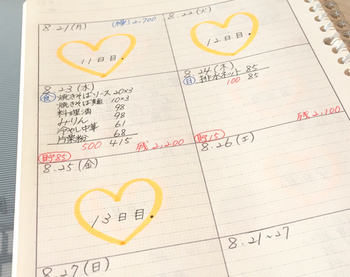 8.21(月) (残)2,700
11日目.
8.22(火)
12日目.
8.23(水)
食 焼きそばソース 20×3
焼きそば麺 10×3
料理酒 98
みりん 98
冷やし中華 61
片栗粉 68
500 415
貯85 残2,200
8.24(木)
日 排水ネット 85
100 85
貯15 残2,100
8.25(金)
13日目.
8.26(土)
8.27(日)
8.21~27